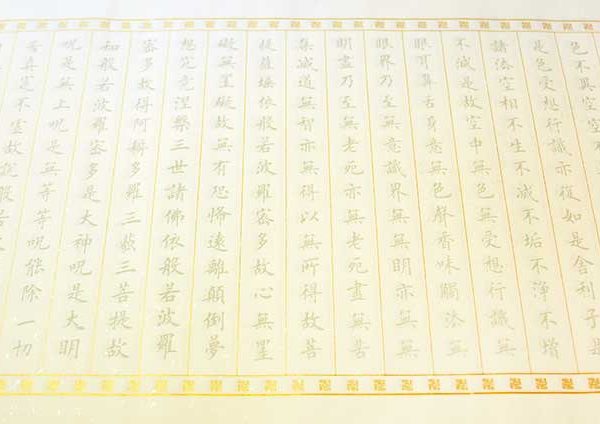 色不異空空
是色受想行識亦復如是舍利子是
諸法空相不生不滅不垢不淨不增
不減是故空中無色無受想行識無
眼耳鼻舌身意無色聲香味觸法無
眼界乃至無意識界無無明亦無無
明盡乃至無老死亦無老死盡無苦
集滅道無智亦無得以無所得故菩
提薩埵依般若波羅密多故心無罣
礙無罣礙故無有恐怖遠離顛倒夢
想究竟涅槃三世諸佛依般若波羅
密多故得阿耨多羅三藐三菩提故
知般若波羅密多是大神呪是大明
呪是無上呪是無等等呪能除一切
苦真實不虛故說般若